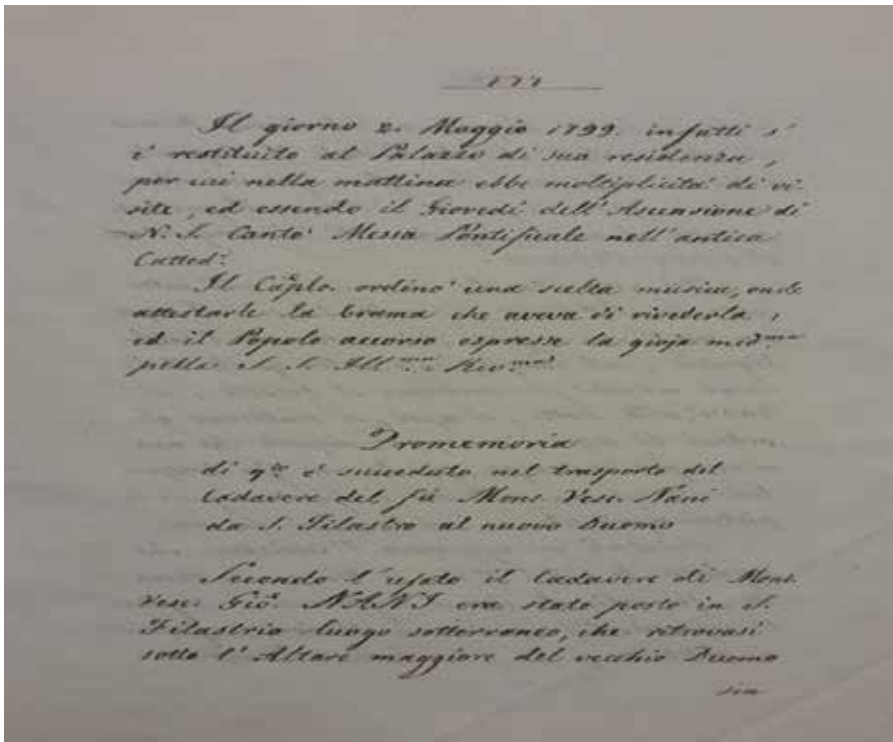 177
Il giorno 2. Maggio 1799. infatti s'
è restituito al Palazzo di sua residenza,
per cui nella mattina ebbe moltiplicità di vi-
site, ed essendo il Giovedì dell'Ascensione di
N. S. Cantò Messa Pontificale nell'antica
Catted.
Il Caplo. ordinò una scelta musica, onde
attestarle la brama che aveva di rivederla;
ed il Popolo accorso espresse la gioja med.ma
pella S. S. Ill.ma Rev.ma
Promemoria
di q.to è succeduto nel trasporto del
Cadavere del fù Mons. Vesc. Nani
da S. Filastro al nuovo Duomo
Secondo l'usato il Cadavere di Mons.
Vesc. Gio. NANI era stato posto in S.
Filastrio luogo sotterraneo, che ritrovasi
sotto l'Altare maggiore del vecchio Duomo